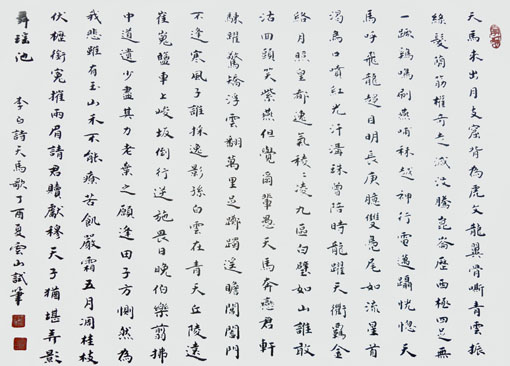 天馬来出月支窟背為虎文龍翼骨嘶青雲振
綠髮蘭筋權奇走滅沒騰崑崙歷西極四足無
一蹶鷄鳴刷燕晡秣越神行電邁躡恍惚天
馬呼飛龍趨目明長庚臆雙鳧尾如流星首
渴烏口噴紅光汗溝珠曾陪時龍躍天衢羈金
絡月照皇都逸氣稜稜凌九區白璧如山誰敢
沽回頭笑紫燕但覺爾輩愚天馬奔戀君軒
駷躍驚矯浮雲翻萬里足躑躅遙瞻閶闔門
不逢寒風子誰採逸影孫白雲在青天丘陵遠
崔嵬鹽車上峻坂倒行逆施畏日晚伯樂翦拂
中道遺少盡其力老棄之願逢田子方惻然為
我悲雖有玉山禾不能療苦飢嚴霜五月凋桂枝
伏櫪銜冤摧兩眉請君贖獻穆天子猶堪弄影
舞瑤池
李白詩天馬歌丁酉夏雲山試筆